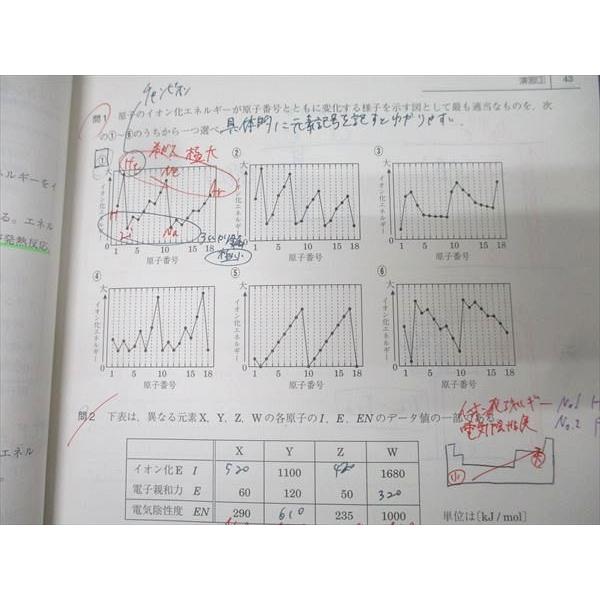 演習① 43
チャンピオン
問1 原子のイオン化エネルギーが原子番号とともに変化する様子を示す図として最も適当なものを、次
の①~⑥のうちから一つ選べ。
具体的に元素記号を記すとわかりやすい。
① ② ③
希ガス 極大
He Ne Ar
H Li Na
極小
大 イオン化エネルギー 0
1 5 10 15 18
原子番号
大 イオン化エネルギー 0
1 5 10 15 18
原子番号
大 イオン化エネルギー 0
1 5 10 15 18
原子番号
④ ⑤ ⑥
大 イオン化エネルギー 0
1 5 10 15 18
原子番号
大 イオン化エネルギー 0
1 5 10 15 18
原子番号
大 イオン化エネルギー 0
1 5 10 15 18
原子番号
問2 下表は、異なる元素X、Y、Z、Wの各原子のI、E、ENのデータ値の一部である。
X Y Z W
イオン化E I 520 1100 420 1680
電子親和力 E 60 120 50 320
電気陰性度 EN 290 610 235 1000
単位は〔kJ/mol〕
電気陰性度
No.1
No.2
小 大
ルギーをイ
る。エネル
発熱反応
エネル